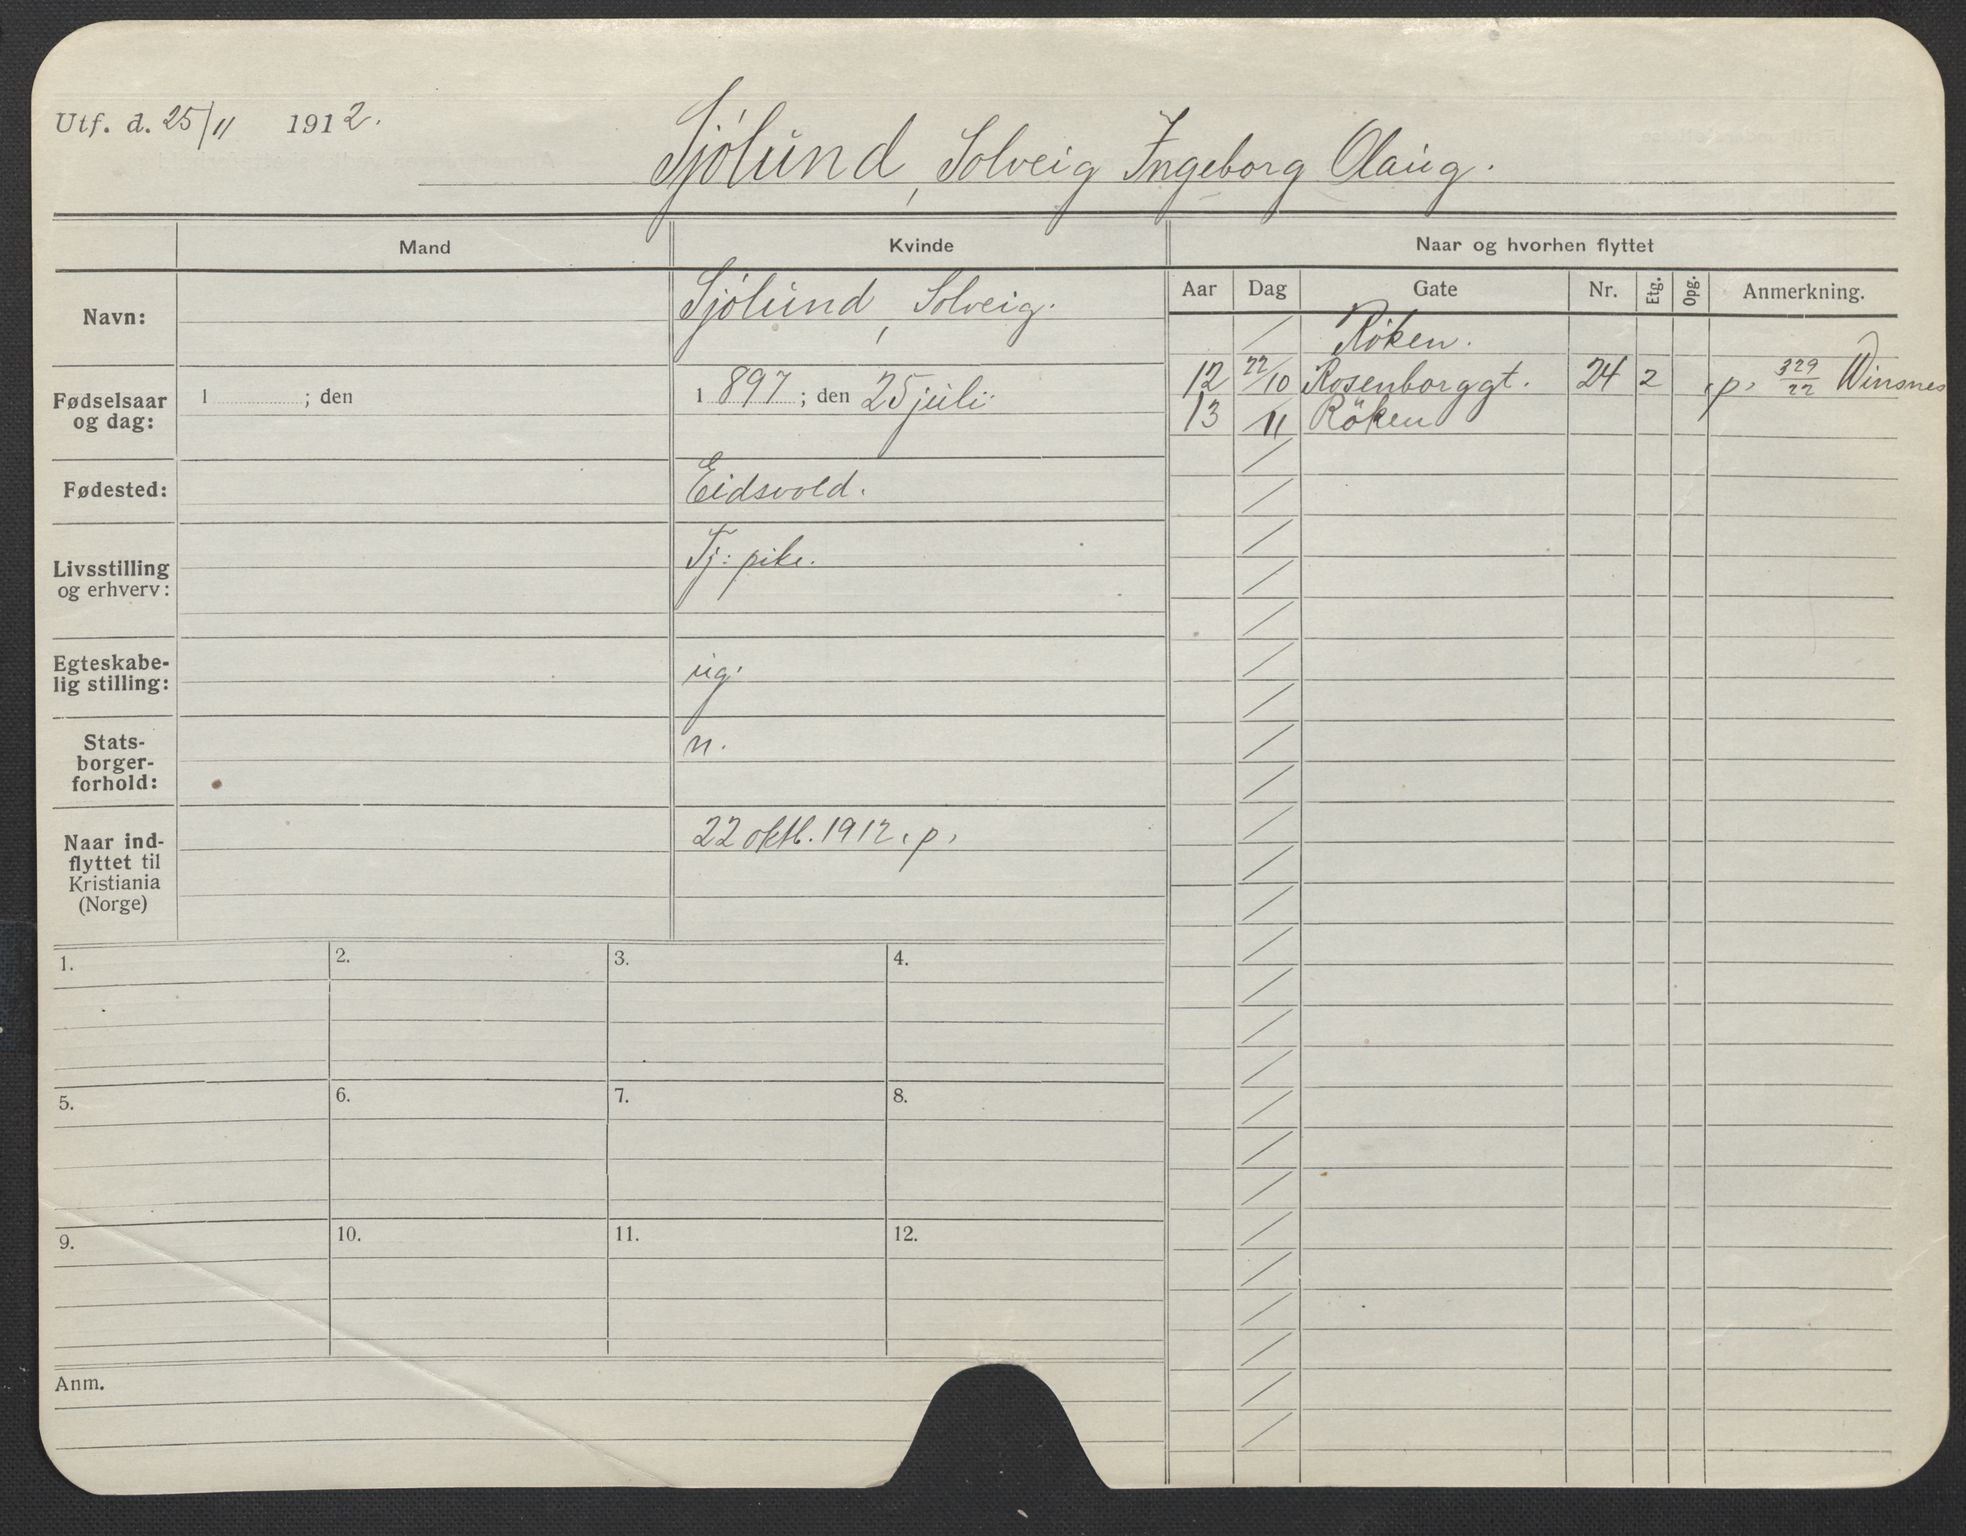 Utf. d. 25/11 1912.
Sjölund, Solveig Ingeborg Olaug.
Mand
Kvinde
Naar og hvorhen flyttet
Navn:
Sjölund, Solveig.
Aar Dag Gate Nr. Etg. Opg. Anmerkning.
Röken.
12 22/10 Rosenborggt. 24 2 "p" 329/22 Winsnes
13 /11 Röken
Fødselsaar
og dag:
1 ; den
1 897 ; den 25 juli
Fødested:
Eidsvold.
Livsstilling
og erhverv:
Tj: pike.
Egteskabe-
lig stilling:
ug.
Stats-
borger-
forhold:
n.
Naar ind-
flyttet til
Kristiania
(Norge)
22 oktb. 1912 "p"
1. 2. 3. 4.
5. 6. 7. 8.
9. 10. 11. 12.
Anm.